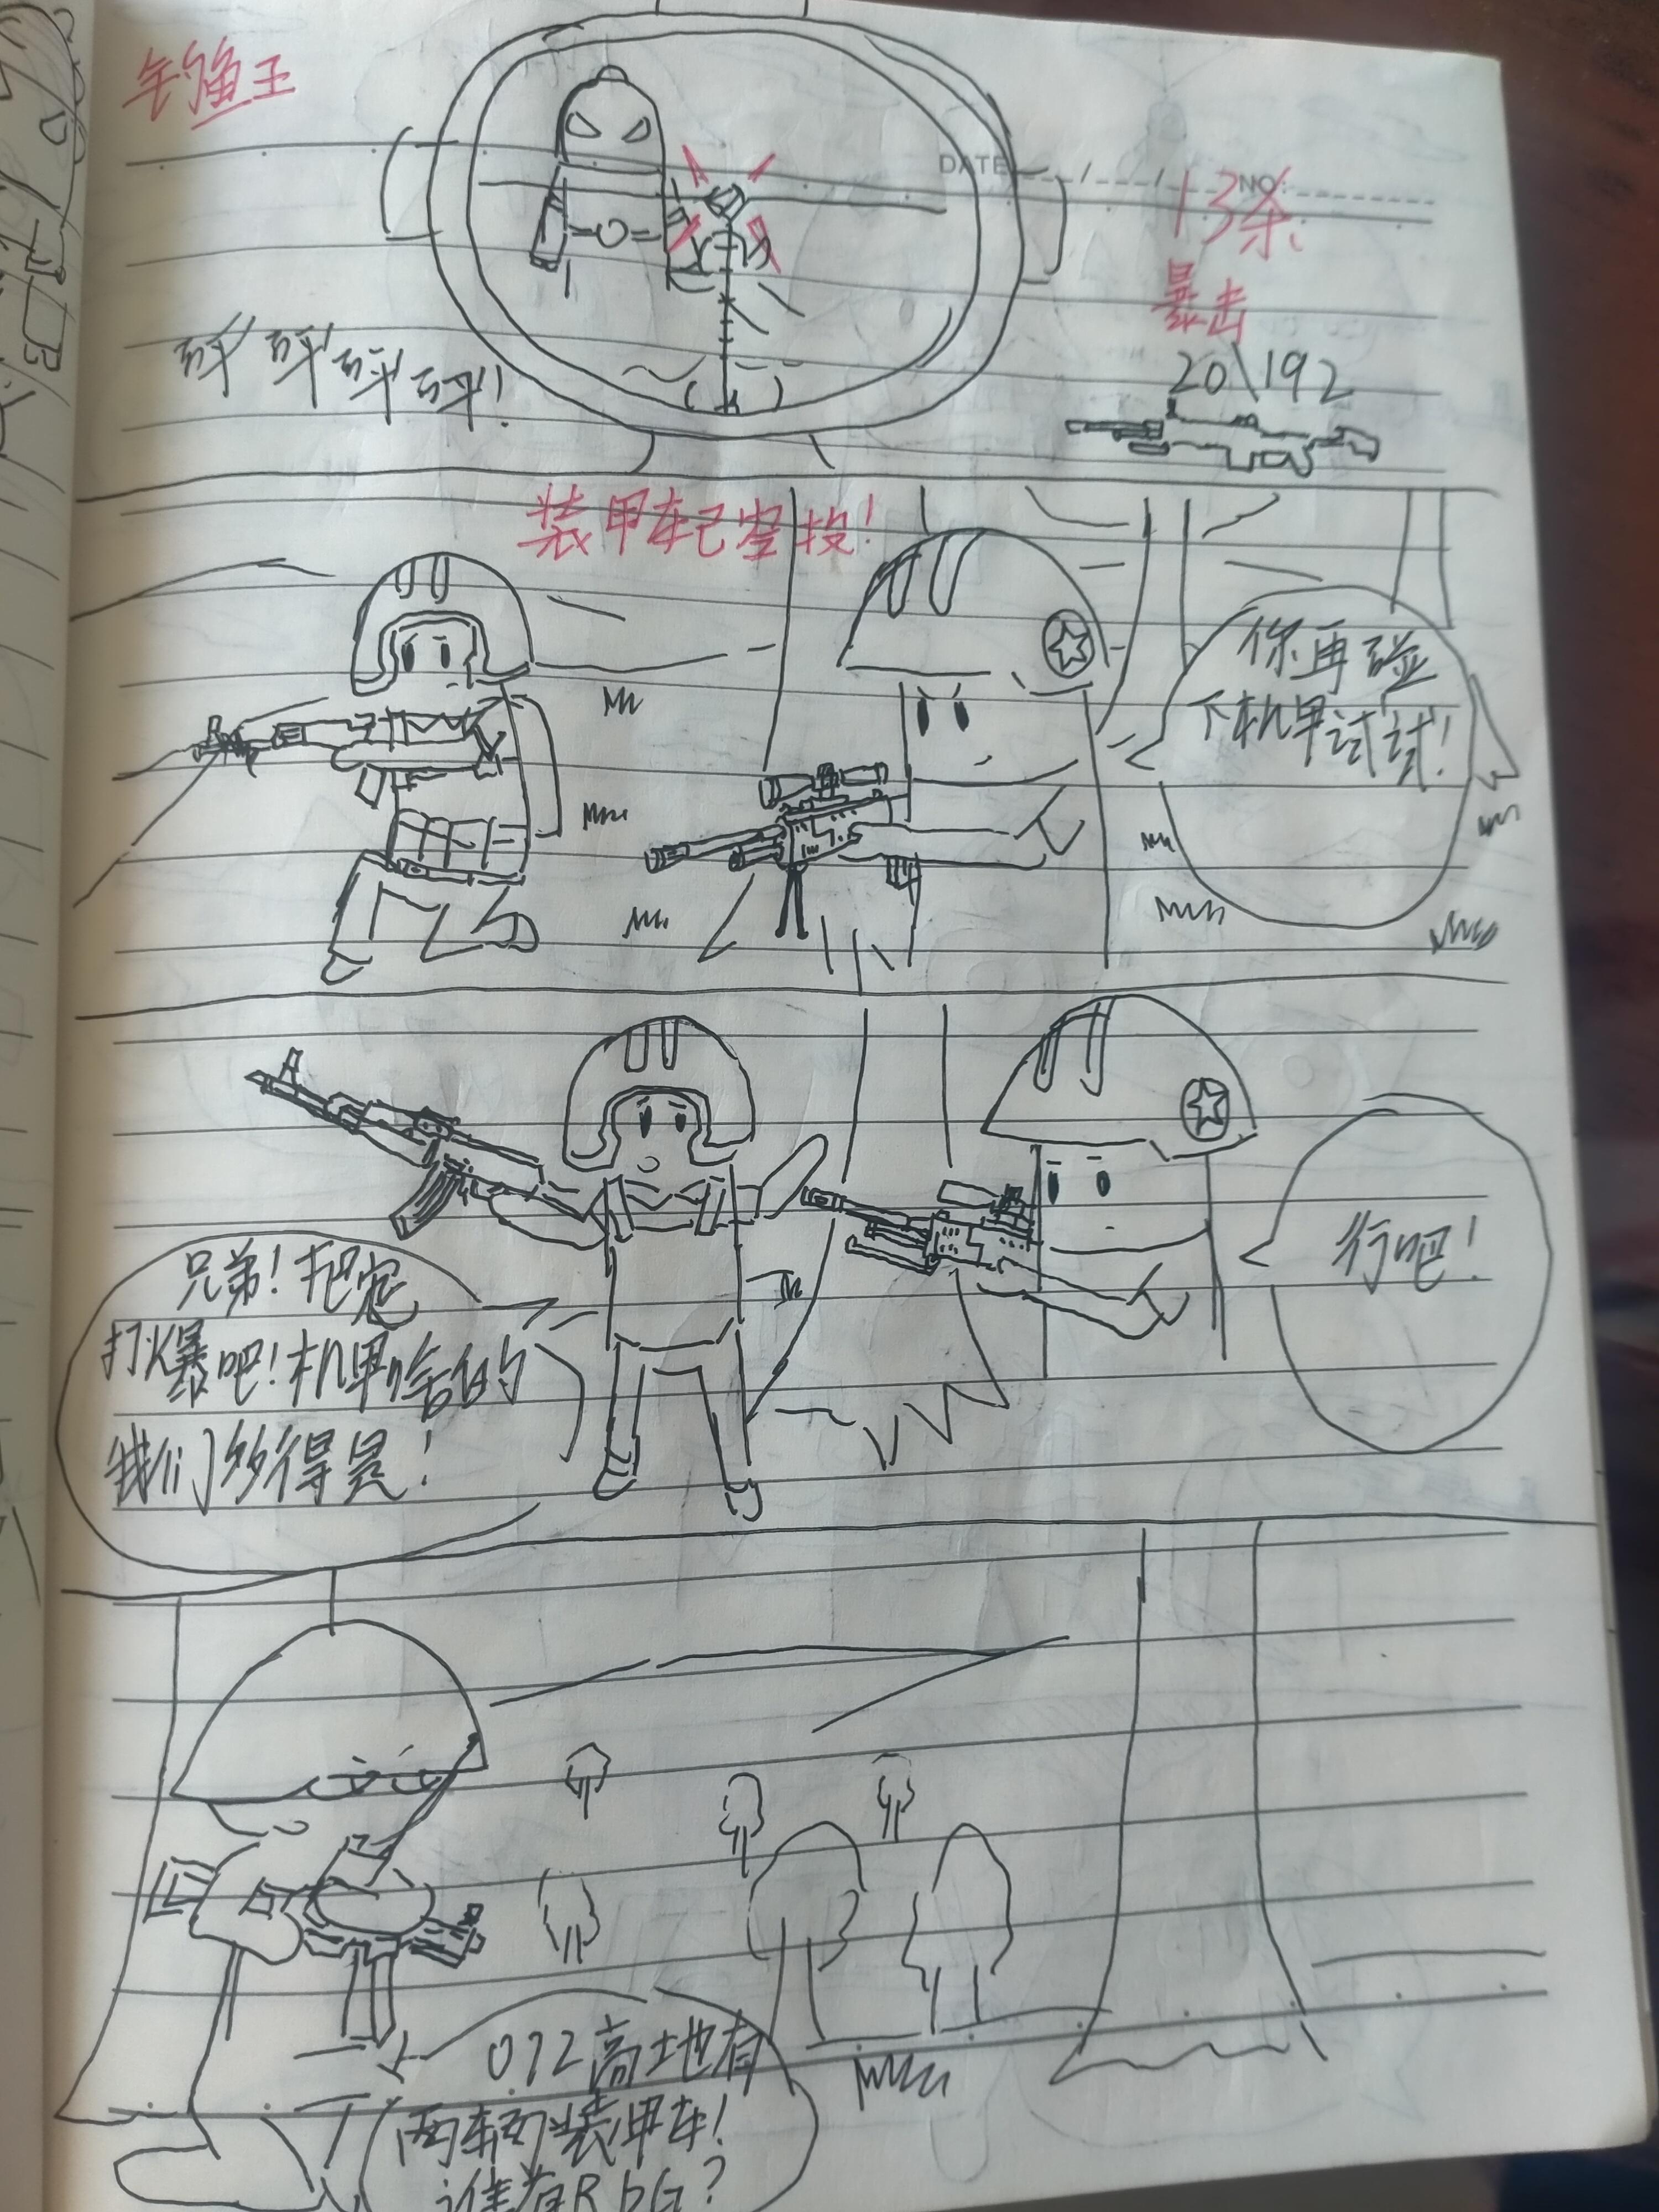 钓鱼王
DATE
NO:
13杀
暴击
20\192
砰砰砰砰!
装甲车已空投!
你再碰
下机甲试试!
兄弟!把它
打爆吧!机甲啥的
我们多得是!
行吧!
072高地有
两辆装甲车!
谁有RPG?